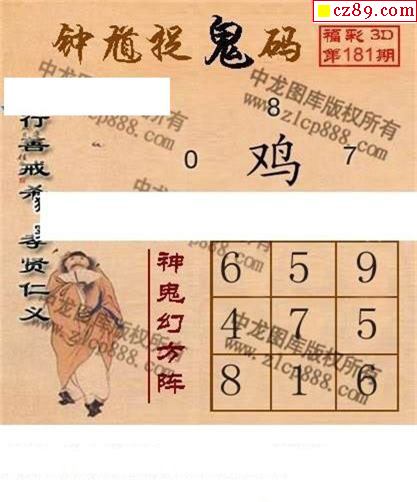 cz89.com
钟馗捉鬼码
福彩3D
第181期
中龙图库版权所有
www.zlcp888.com
8
0 鸡 7
行善戒
孝贤仁义
神鬼幻方阵
6 5 9
4 7 5
8 1 6
中龙图库版权所有
www.zlcp888.com